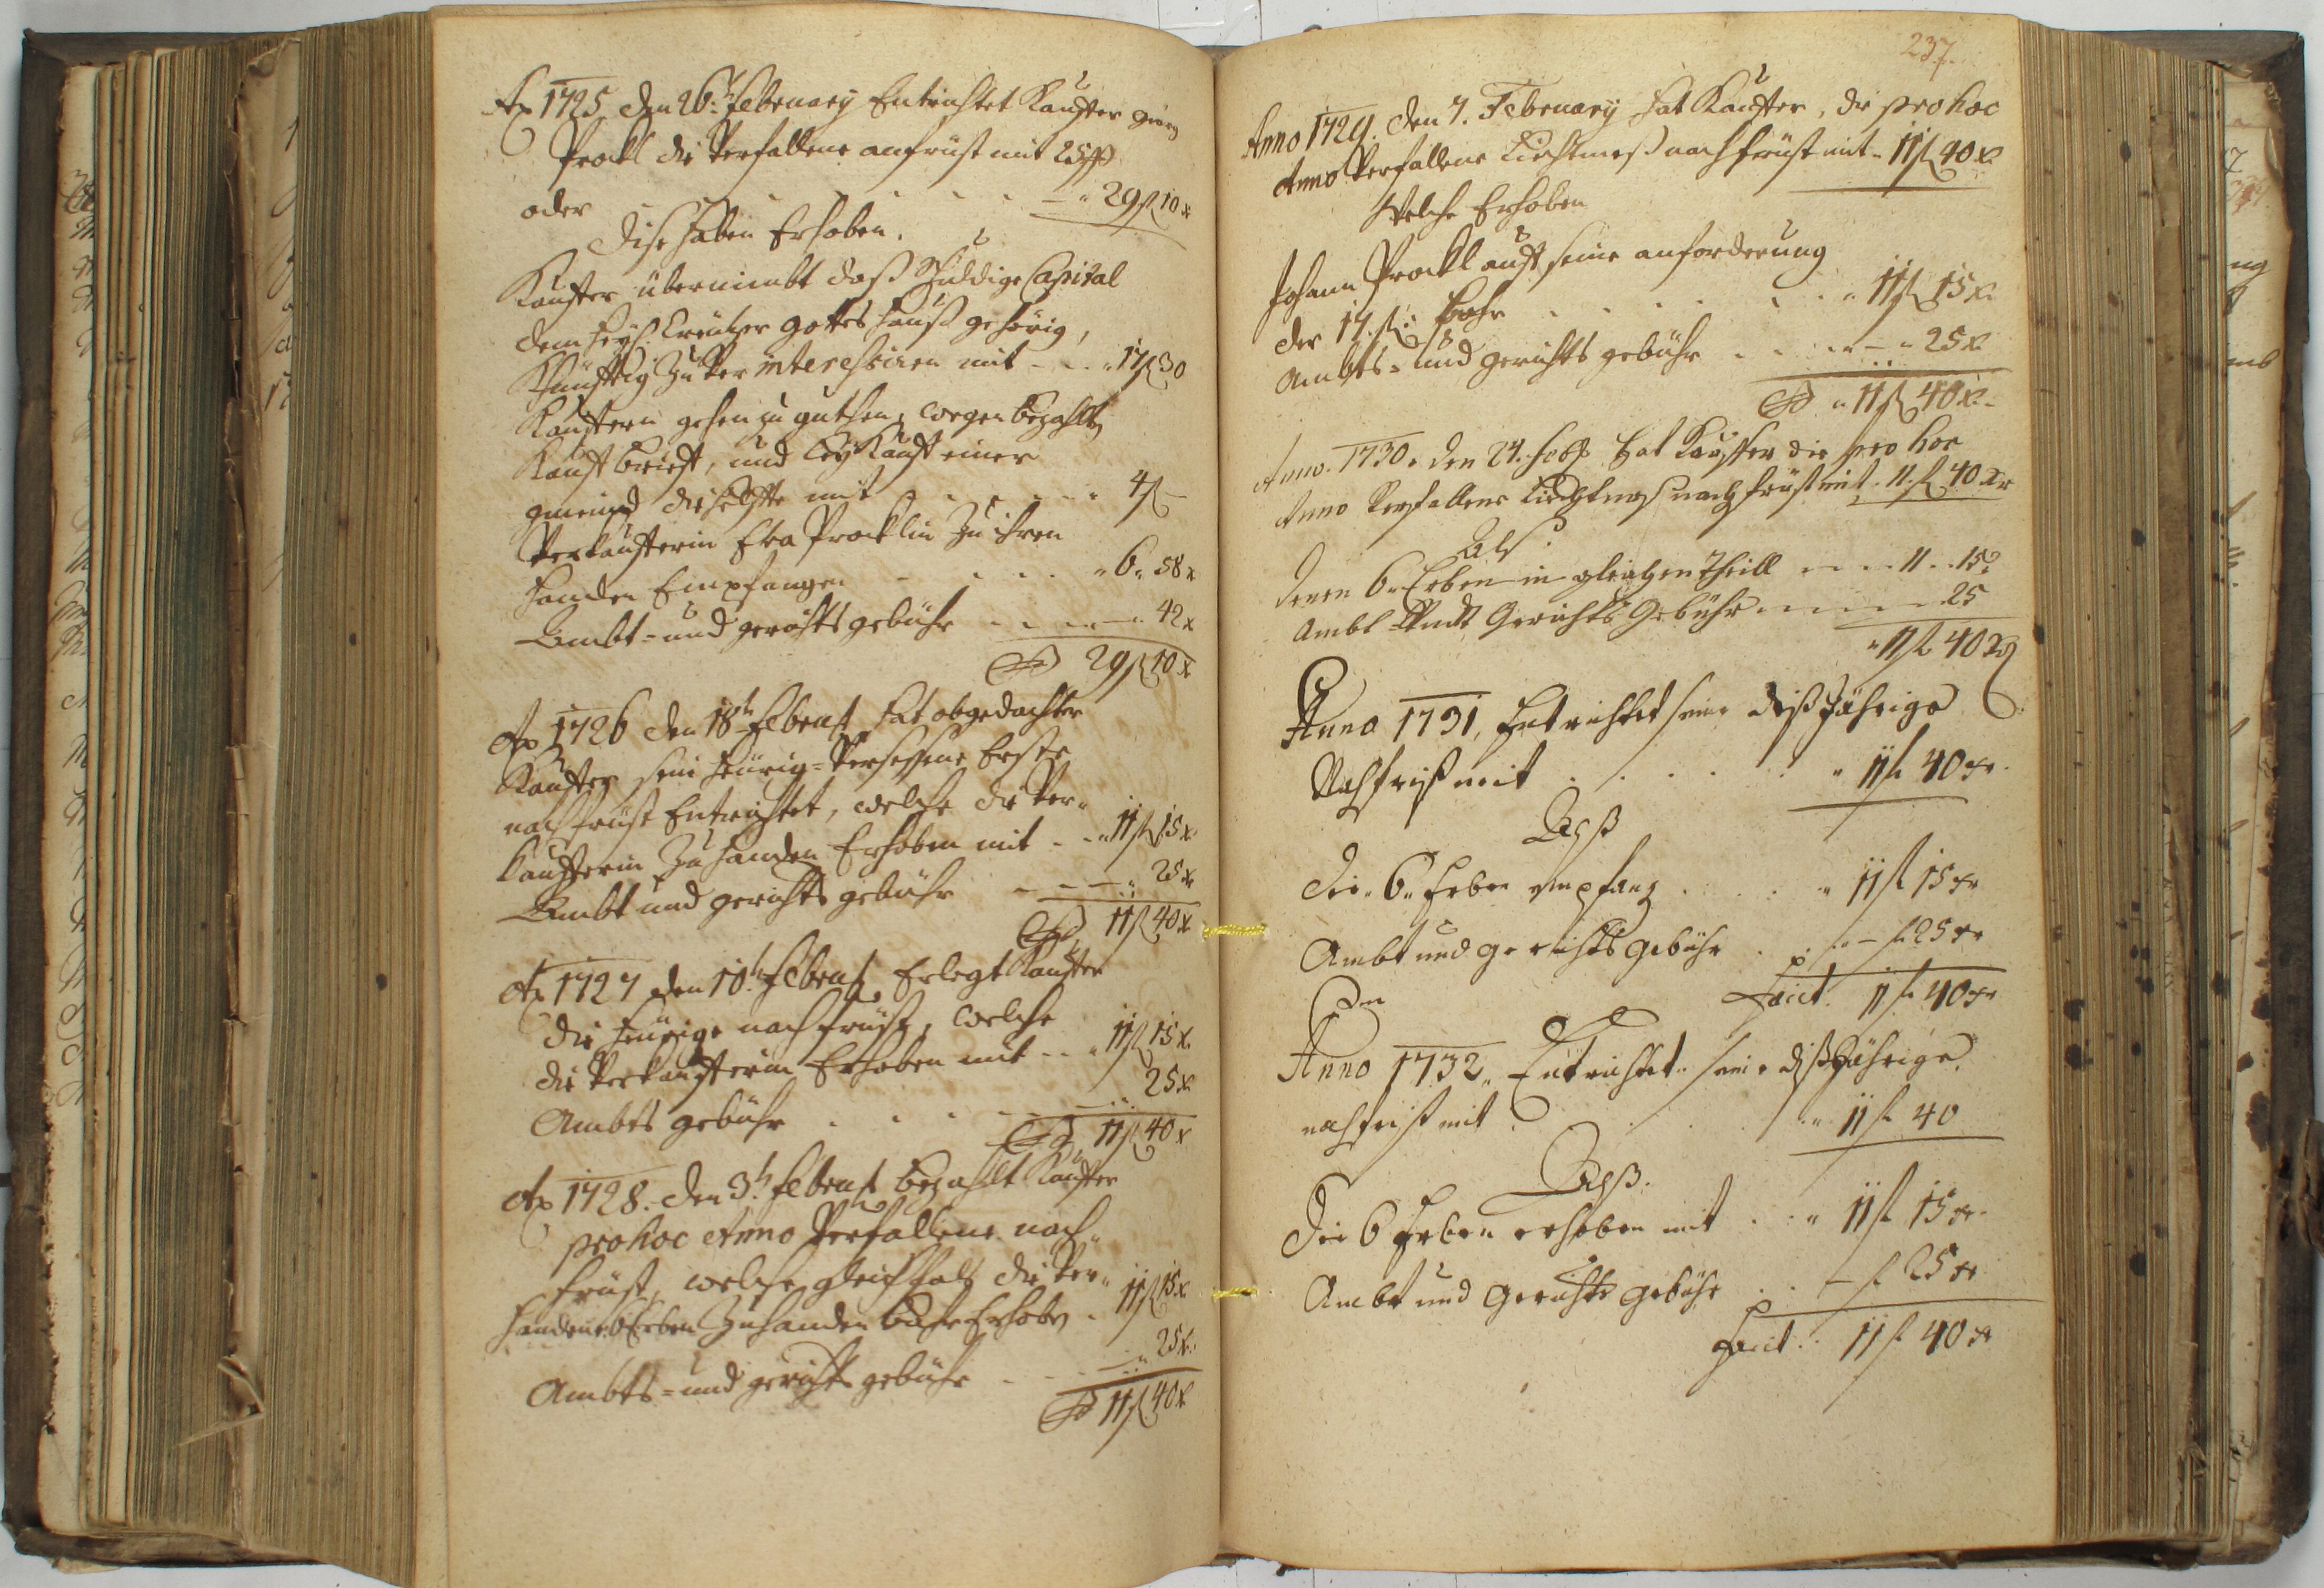 Ao 1725 den 26.t February Entrichtet Kauffer Georg
Prockl die Verfallene anfrüst mit 25 ßß
oder - - - - - - 29 fl 10 x
dise haben Erhoben.
Kauffer übernimbt daß Schuldige Capital
dem heyl. Creützer Gottes Hauß gehörig,
Khünfftig zu Ver interessiren mit - - 17 fl 30
Kauffern gehen zu guthen, wegen bezahlt
Kauff brieff, und Leykauff einer
gmeind die helffte mit - - - - 4 fl -
Verkaufferin Eva Procklin zu ihren
Handen Empfangen - - - - 6 " 58 x
Ambt- und gerichts gebühr - - - - " 42 x
29 fl 10 x
Ao 1726 den 18t Februar hat obgedachter
Kauffer sein heürig-Versessene Erste
nachfrüst Entrichtet, welche die Ver-
Kaufferin zu handen Erhoben mit - - 11 fl 15 x
Ambt und gerichts gebühr - - - " 25 x
11 fl 40 x
Ao 1727 den 10t Februar Erlegt Kauffer
die heürige nachfrüst, welche
die Verkaufferin Erhoben mit - - 11 fl 15 x
Ambts gebühr - - - - 25 x
11 fl 40 x
Ao 1728. den 3t Februar bezahlt Kauffer
pro hoc Anno Verfallene nach-
früst, welche gleichfals die Ver-
handene 6 Erben zu handen Erhoben - 11 fl 15 x
Ambts- und gerichts gebühr - - - 25 x
11 fl 40 x
237.
Anno 1729. den 7. February hat Kauffer, die pro hoc
Anno Verfallene Liechtmeß nachfrüst mit - 11 fl 40 x
Welche Erhoben
Johann Prockl auff seine anforderung
der 17 fl - - - - 11 fl 15 x
Ambts- und gerichts gebühr - - - - 25 x
11 fl 40 x
Anno. 1730. den 24. Feb. hat Kauffer die pro hoc
Anno Verfallene Liechtmeß nachfrüst mit. 11. fl 40 xr
Als
denen 6. Erben in gleichen Theill - - - 11 - 15
Ambt Undt Gerichts Gebühr - - - - 25
11 fl 40 x
Anno 1731, Entrichtet seine dißjährige
Nachfrist mit . . . . . " 11 fl 40 xr
Alß
Die 6 Erben empfang . . . " 11 fl 15 xr
Ambt und gerichts gebühr . . " - fl 25 xr
Facit. 11 fl 40 xr
Anno 1732, Entrichtet seine dißjährige
nachfrist mit . . . . " 11 fl 40
Alß.
Die 6 Erben erhoben mit . . " 11 fl 15 xr
Ambt und Gerichts Gebühr . . - fl 25 xr
Facit. 11 fl 40 xr